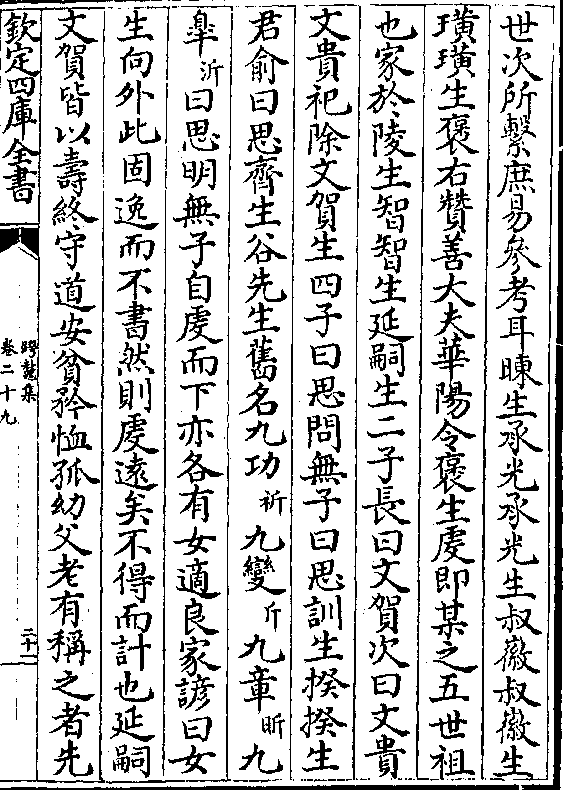 世次所繫庶易參考耳暕生承光承光生叔徽叔徽生
璜璜生褒右贊善大夫華陽令褒生䖍即某之五世祖
也家於陵生智智生延嗣生二子長曰文賀次曰文貴
文貴祀除文賀生四子曰思問無子曰思訓生揆揆生
君俞曰思齊生谷先生舊名九功祈九變斤九章昕九
臯沂曰思明無子自䖍而下亦各有女適良家諺曰女
生向外此固逸而不書然則䖍遠矣不得而計也延嗣
文賀皆以壽終守道安貧矜恤孤幼父老有稱之者先
欽定四庫全書
跨鼇集
卷二十九
二十一